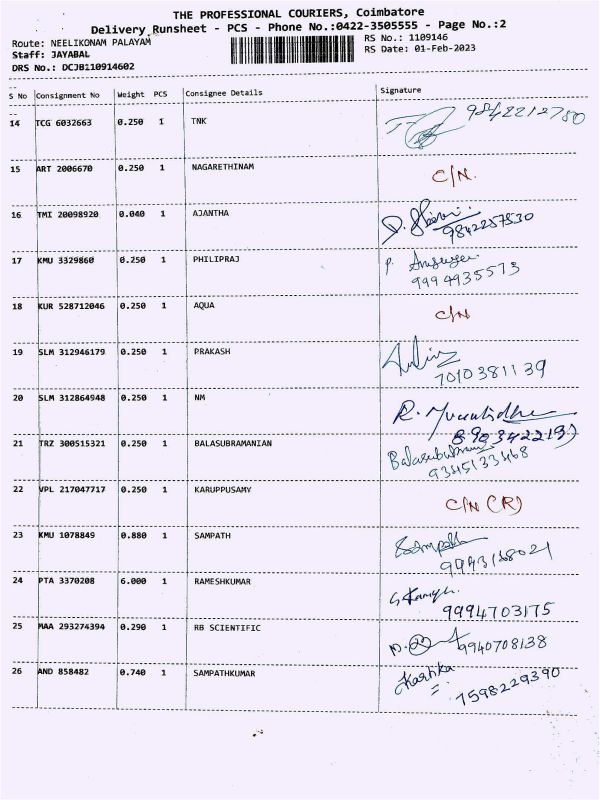 THE PROFESSIONAL COURIERS, Coimbatore
Delivery Runsheet - PCS - Phone No.:0422-3505555 - Page No.:2
Route: NEELIKONAM PALAYAM RS No.: 1109146
Staff: JAYABAL RS Date: 01-Feb-2023
DRS No.: DCJB110914602
S No Consignment No Weight PCS Consignee Details Signature
14 TCG 6032663 0.250 1 TNK 9842212780
15 ART 2006670 0.250 1 NAGARETHINAM C/N.
16 TMI 20098920 0.040 1 AJANTHA
9842257530
17 KMU 3329860 0.250 1 PHILIPRAJ P.
9994935573
18 KUR 528712046 0.250 1 AQUA C/N
19 SLM 312946179 0.250 1 PRAKASH
7010381139
20 SLM 312864948 0.250 1 NM R.
21 TRZ 300515321 0.250 1 BALASUBRAMANIAN
9345133468
22 VPL 217047717 0.250 1 KARUPPUSAMY C/N (R)
23 KMU 1078849 0.880 1 SAMPATH Sampath
9943168021
24 PTA 3370208 6.000 1 RAMESHKUMAR
9994703175
25 MAA 293274394 0.290 1 RB SCIENTIFIC 9940708138
26 AND 858482 0.740 1 SAMPATHKUMAR Karthika
7598229390